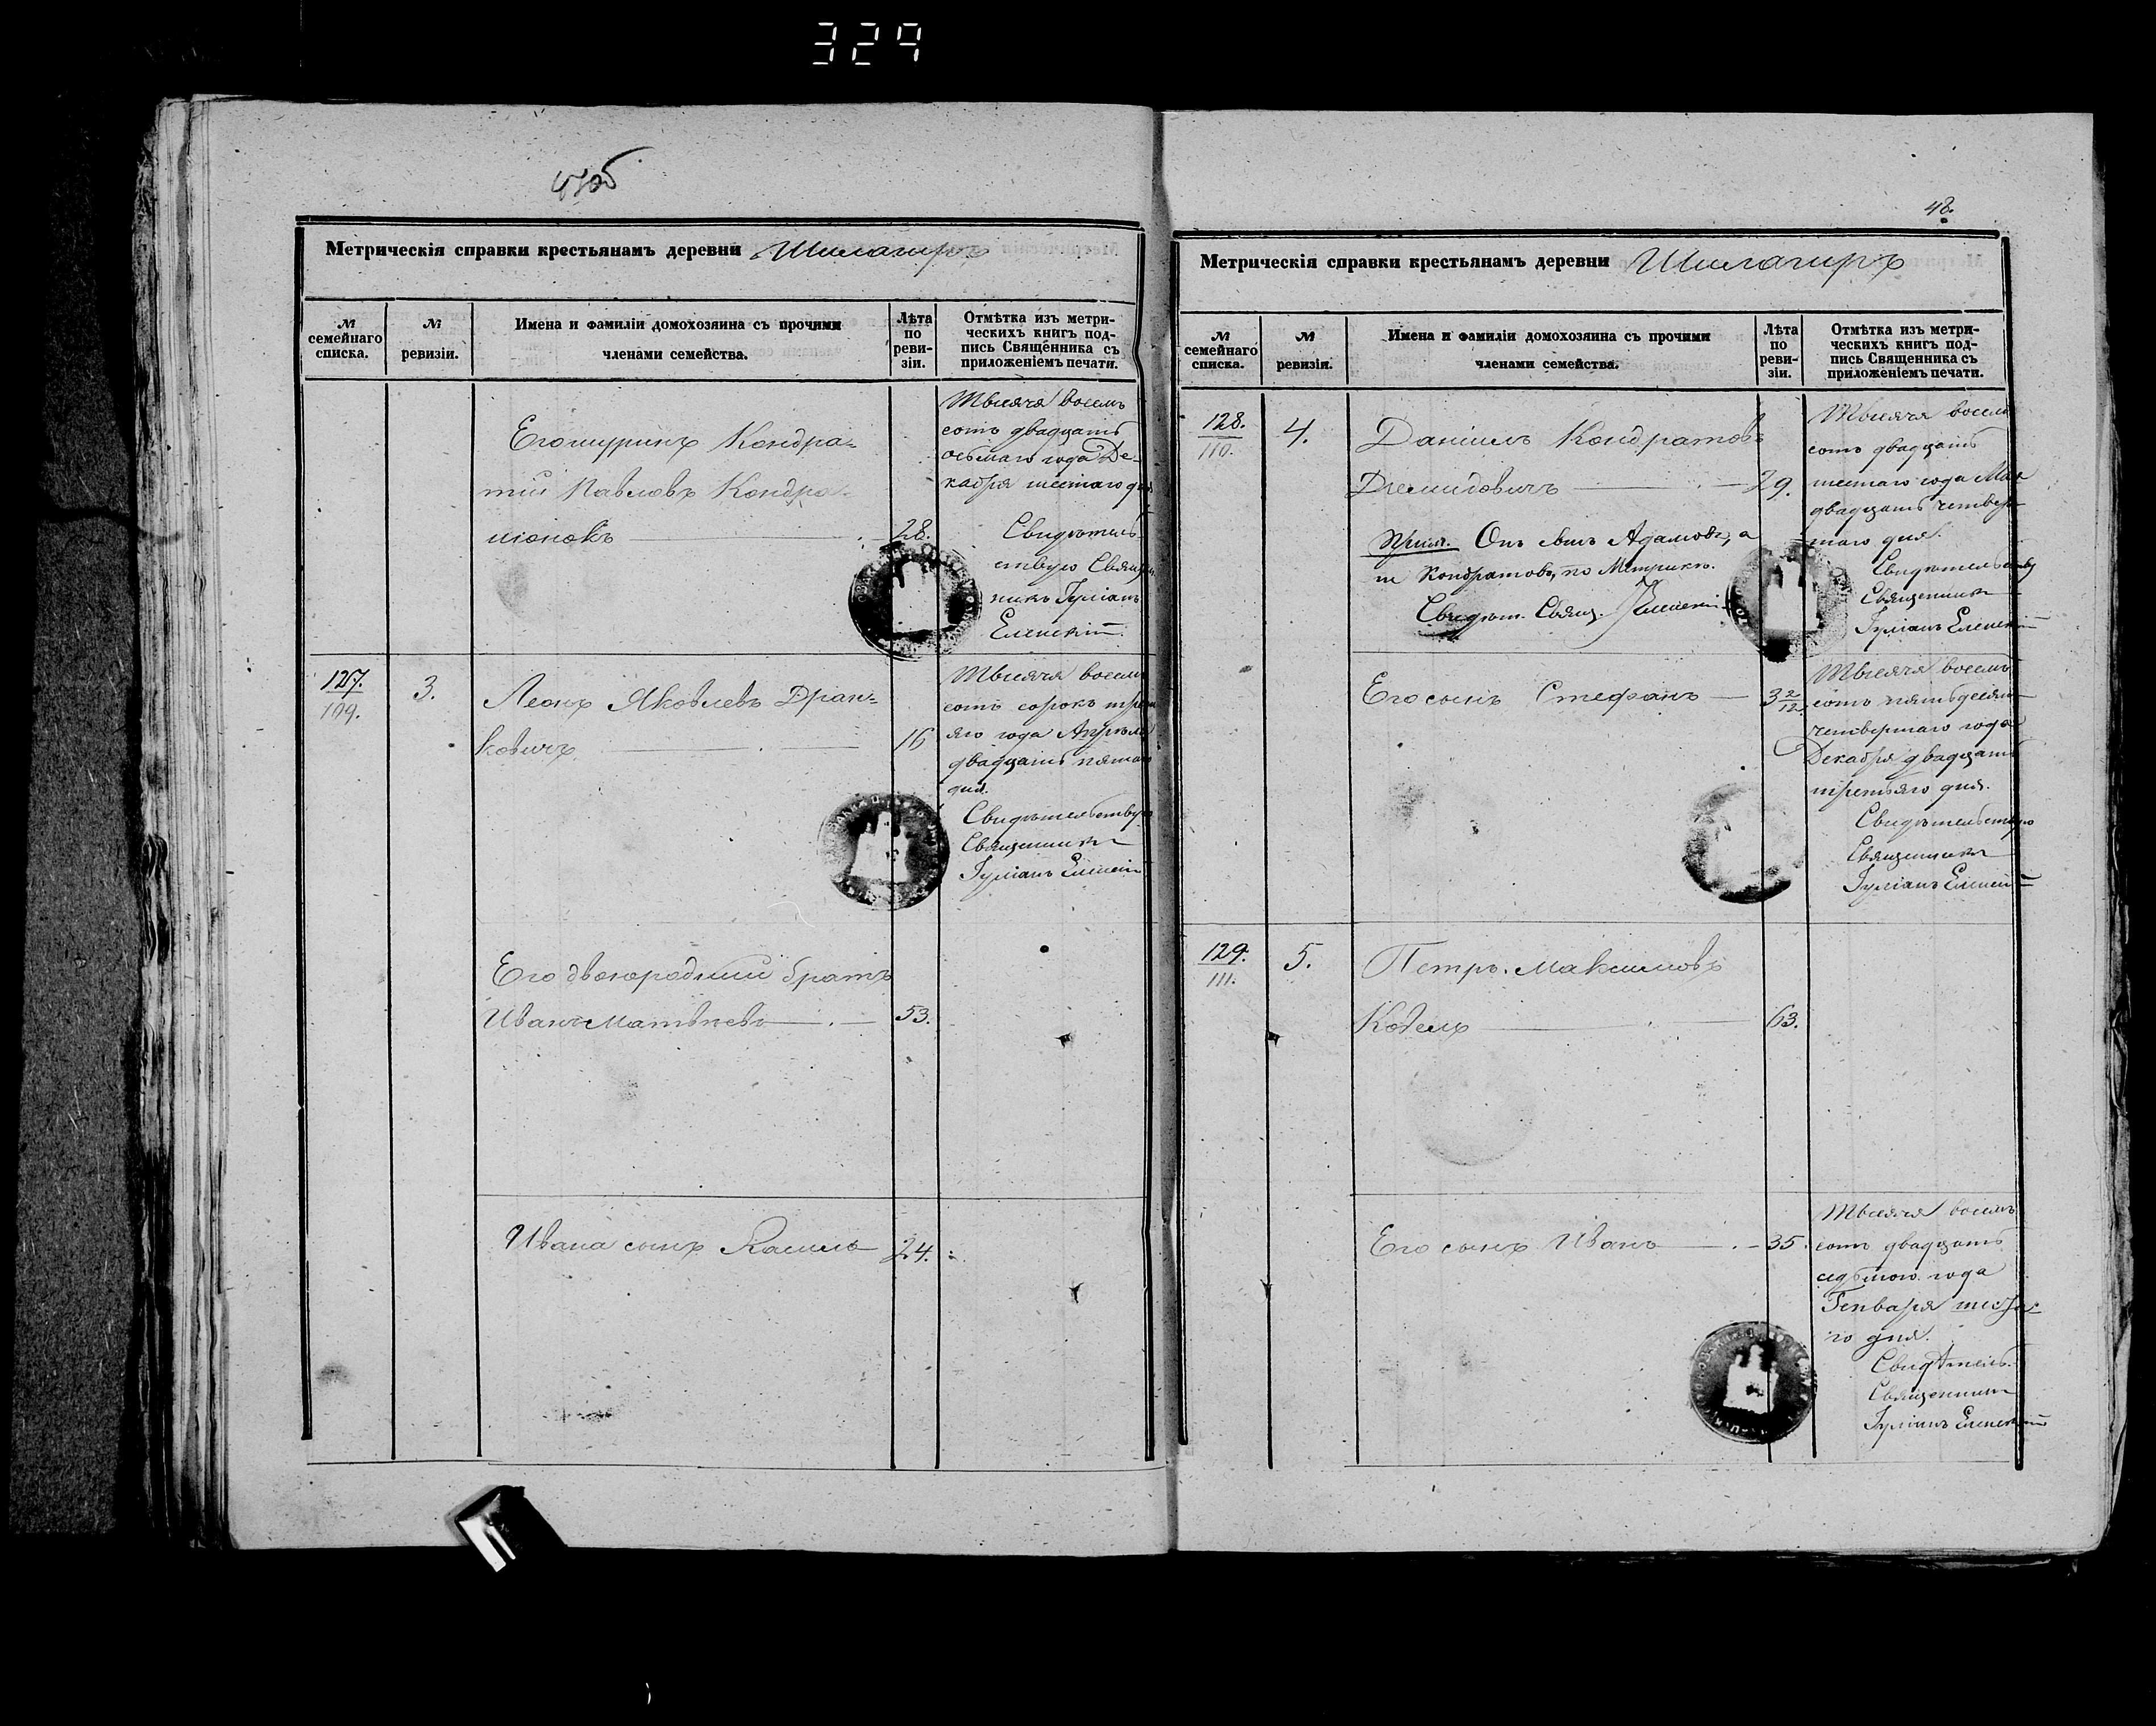 329
47об
Метрическія справки крестьянамъ деревни Шилагиръ
№ семейнаго списка.
№ ревизіи.
Имена и фамиліи домохозяина съ прочими членами семейства.
Лѣта по ревизіи.
Отмѣтка изъ метрическихъ книгъ подпись Священника съ приложеніемъ печати.
Его шуринъ Кондра-
тій Павловъ Кондра-
28.
Тысяча восемь
сотъ двадцать
осьмаго года Де-
кабря шестаго дня
Свидѣтель-
ствую Священ-
никъ Іуліанъ
127.
109.
3.
Леонъ Яковлевъ Дран-
ковичъ
16
Тысяча восемь
сотъ сорокъ треть-
яго года Апрѣля
двадцать пятаго
дня.
Свидѣтельствую
Священникъ
Іуліанъ
Его двоюродный братъ
Иванъ Матвѣевъ
53.
Ивана сынъ
24.
48.
Метрическія справки крестьянамъ деревни Шилагиръ
№ семейнаго списка.
№ ревизіи.
Имена и фамиліи домохозяина съ прочими членами семейства.
Лѣта по ревизіи.
Отмѣтка изъ метрическихъ книгъ подпись Священника съ приложеніемъ печати.
128.
110.
4.
Даніилъ Кондратовъ
Демидовичъ
29.
Прим. Онъ сынъ Адамовъ, а
не Кондратовъ, по Метрикѣ.
Свидѣт. Свящ.
Тысяча восемь
сотъ двадцать
шестаго года Мая
двадцать четвер-
таго дня.
Свидѣтельствую
Священникъ
Іуліанъ
Его сынъ Стефанъ
3 2/12.
Тысяча восемь
сотъ пятьдесят
четвертаго года
Декабря двадцать
третьяго дня.
Свидѣтельствую
Священникъ
Іуліанъ
129.
111.
5.
Петръ Максимовъ
63.
Его сынъ Иванъ
35.
Тысяча восемь
сотъ двадцать
седьмого года
Генваря
го дня.
Свидѣтель.
Священникъ
Іуліанъ